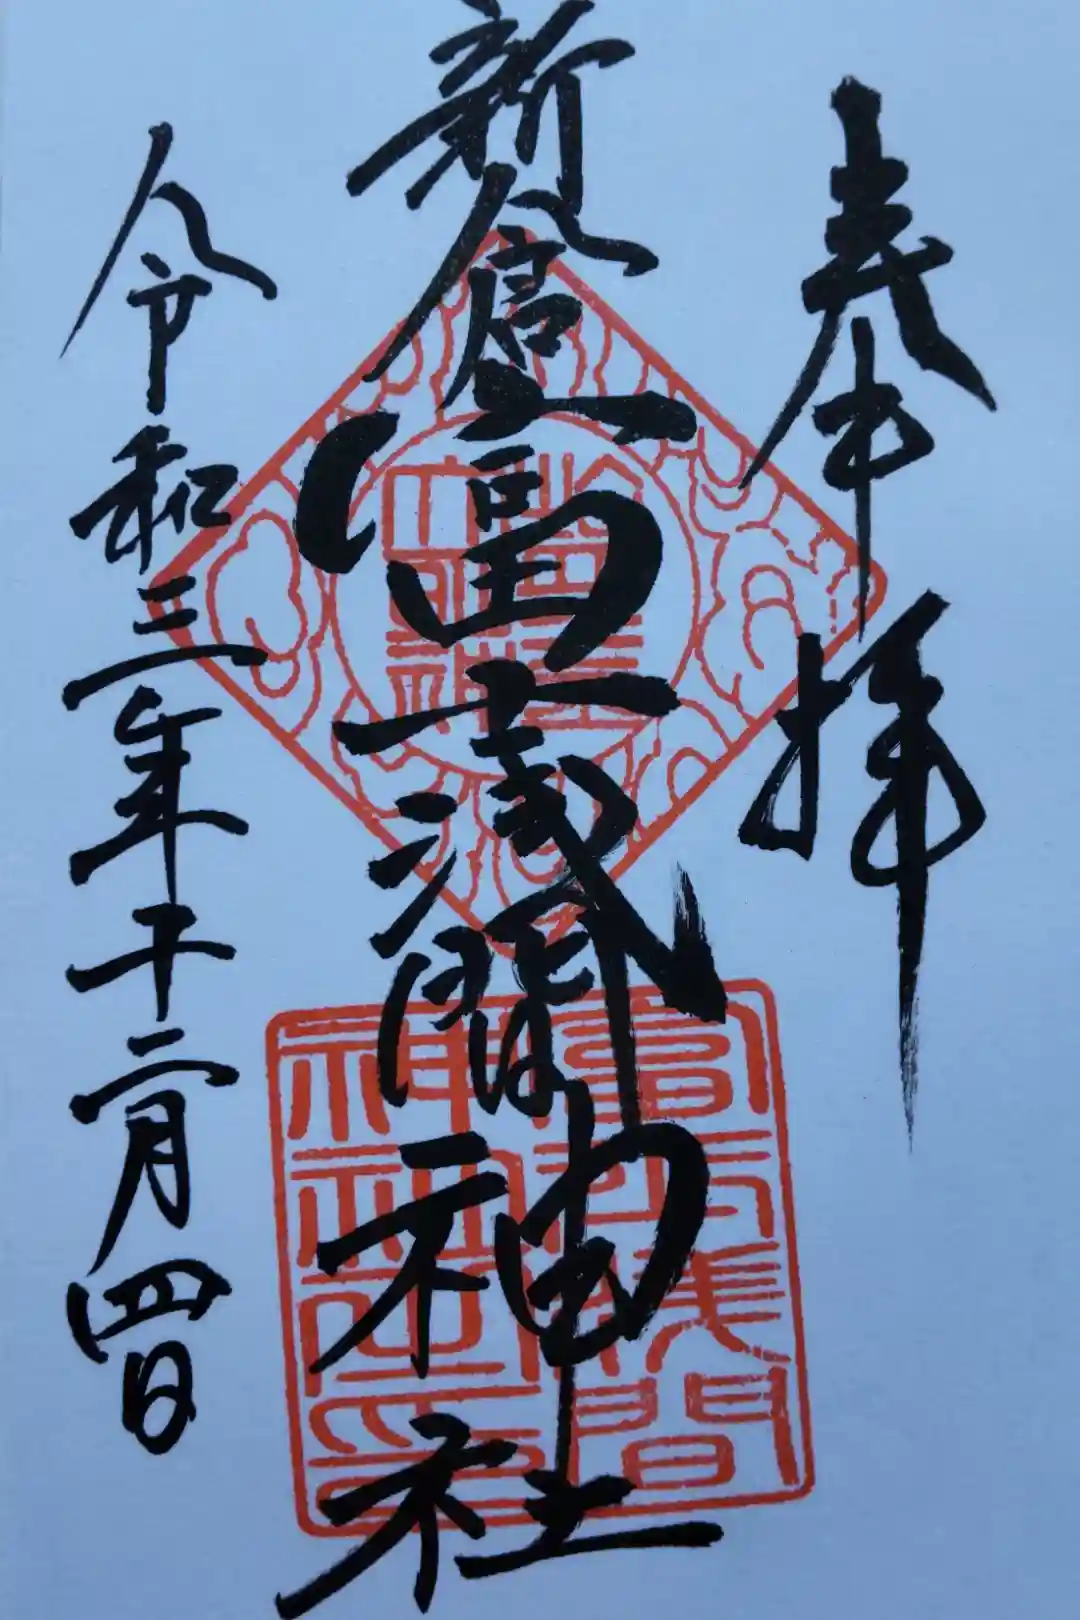 奉拝
新倉富士浅間神社
令和三年十二月四日
富士浅間
神社之印